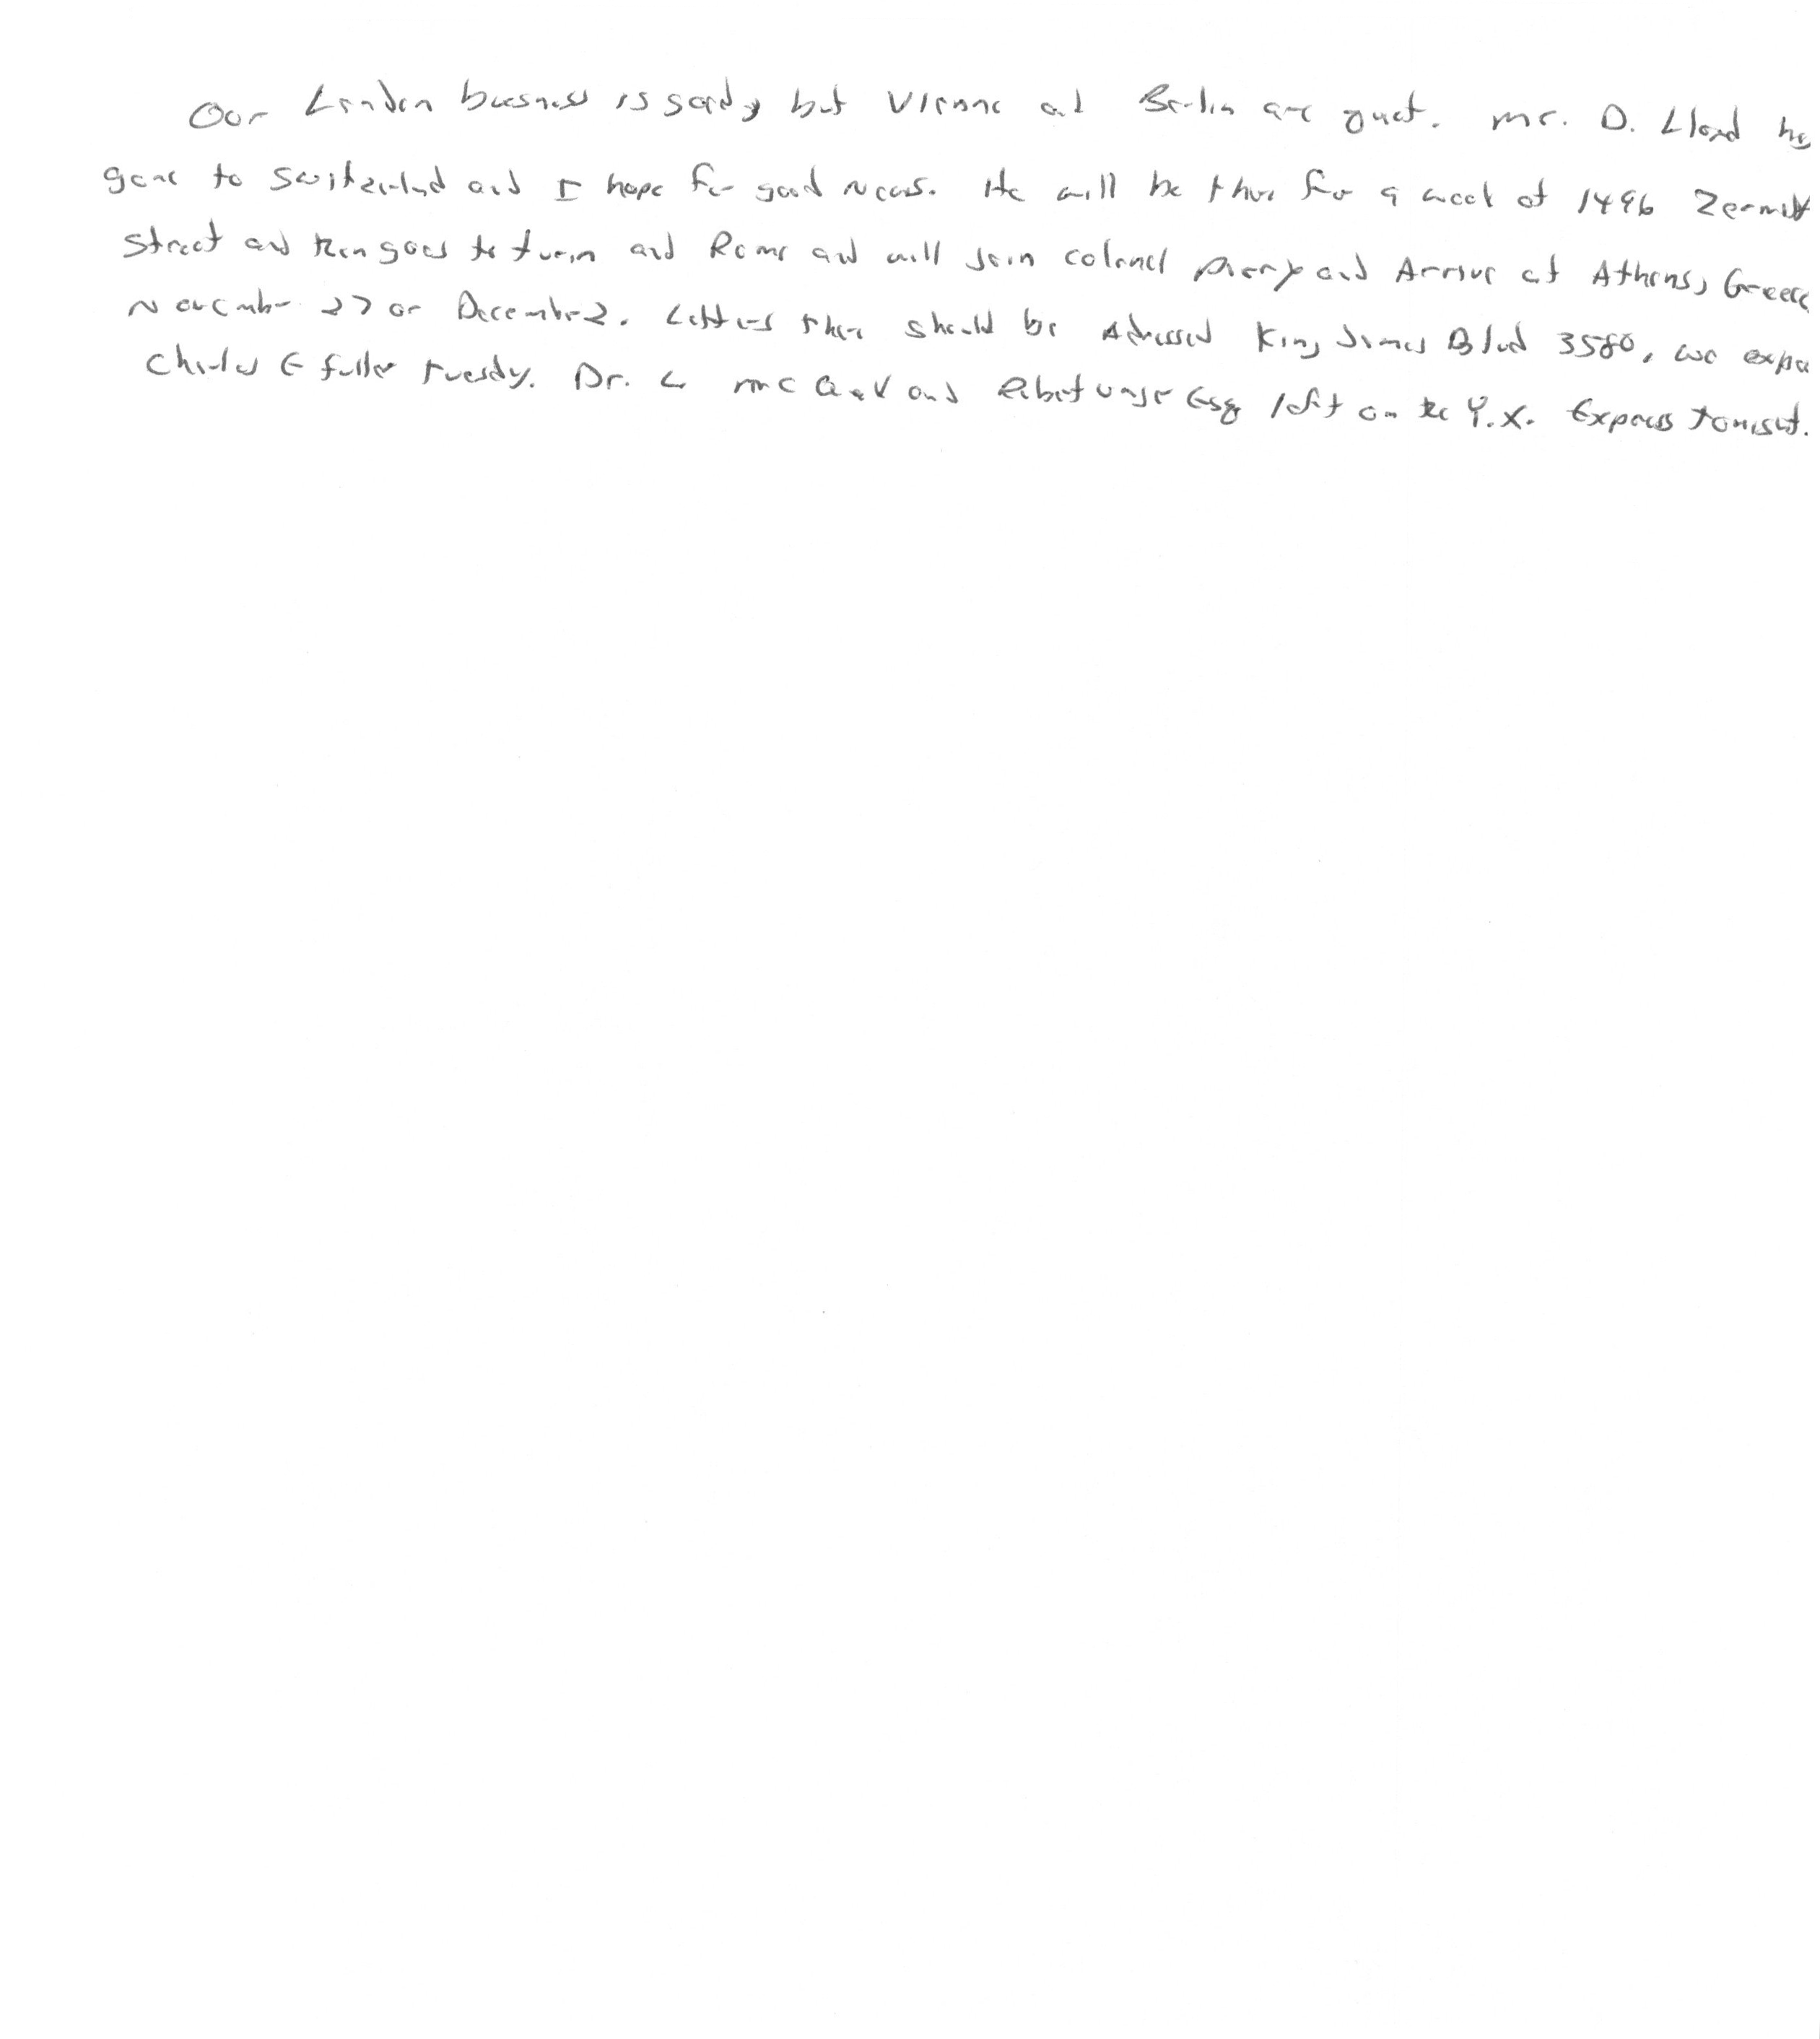 Our London business is good, but Vienna and Berlin are quiet. Mr. D. Lloyd has
gone to Switzerland and I hope for good news. He will be there for a week at 1496 Zermott
Street and then goes to Turin and Rome and will join Colonel Parry and Arrive at Athens, Greece
November 27 or December 2. Letters there should be Adressed King James Blvd 3580. We expect
Charles E Fuller Tuesday. Dr. L McQuaid and Robert Unger Esq left on the Y.X. Express tonight.